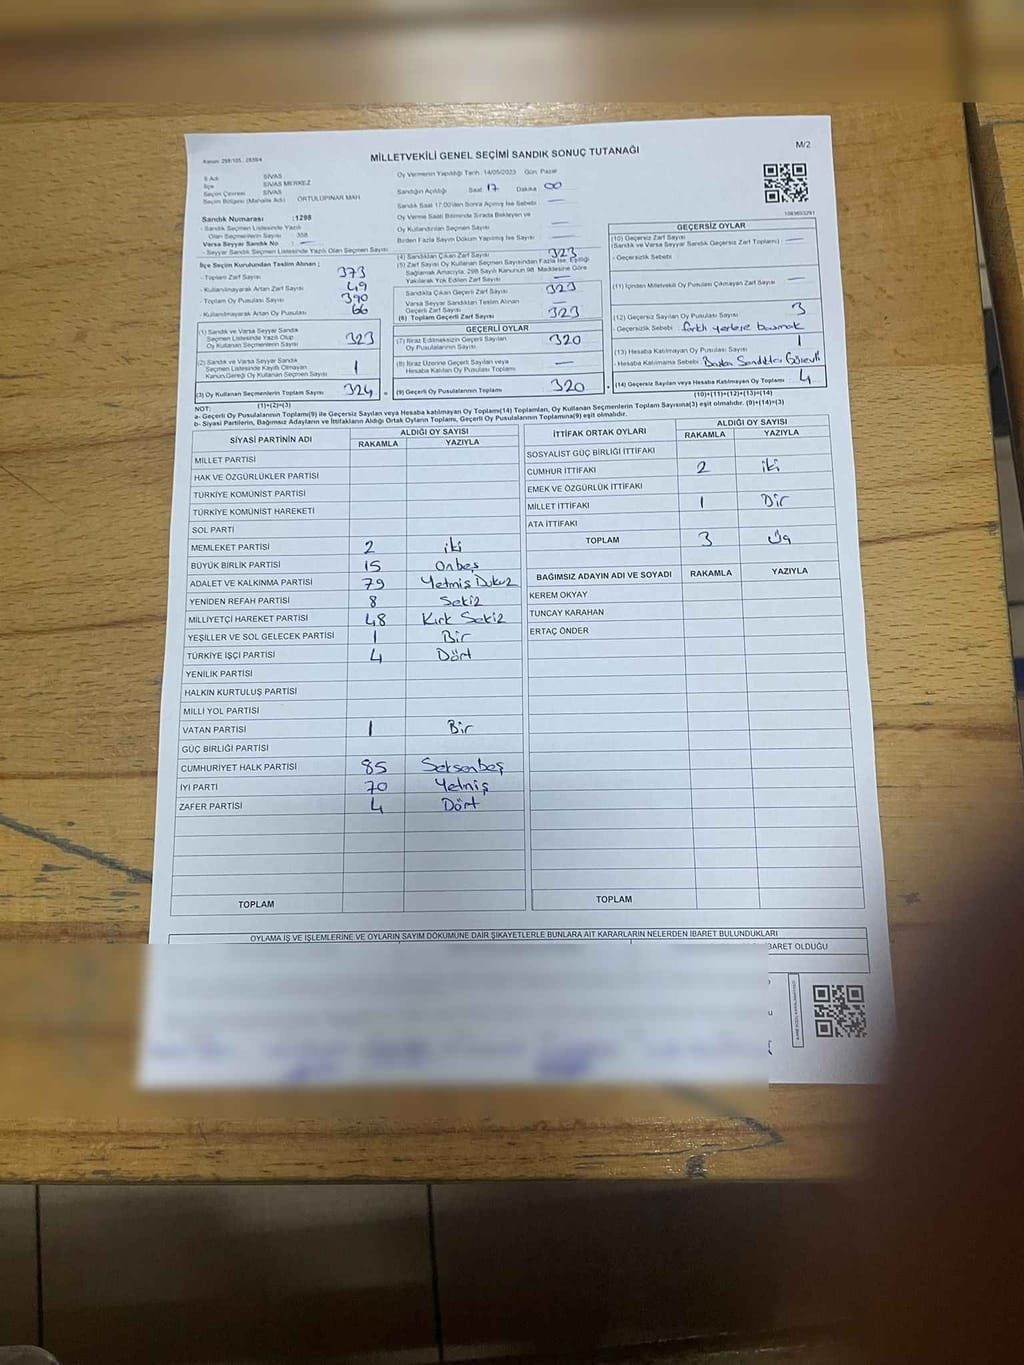 Kanun: 298/105, 2839/4
MİLLETVEKİLİ GENEL SEÇİMİ SANDIK SONUÇ TUTANAĞI
M/2
İl Adı SİVAS
İlçe SİVAS MERKEZ
Seçim Çevresi SİVAS
Seçim Bölgesi (Mahalle Adı) ORTULUPINAR MAH
Sandık Numarası :1298
- Sandık Seçmen Listesinde Yazılı
Olan Seçmenlerin Sayısı : 358
Varsa Seyyar Sandık No : —
- Seyyar Sandık Seçmen Listesinde Yazılı Olan Seçmen Sayısı
Oy Vermenin Yapıldığı Tarih :14/05/2023 Gün: Pazar
Sandığın Açıldığı Saat 17 Dakika 00
Sandık Saat 17.00'den Sonra Açılmış İse Sebebi —
Oy Verme Saati Bitiminde Sırada Bekleyen ve
Oy Kullandırılan Seçmen Sayısı —
Birden Fazla Sayım Döküm Yapılmış İse Sayısı —
1083603291
İlçe Seçim Kurulundan Teslim Alınan ;
- Toplam Zarf Sayısı 373
- Kullanılmayarak Artan Zarf Sayısı 49
- Toplam Oy Pusulası Sayısı 390
- Kullanılmayarak Artan Oy Pusulası 66
(1) Sandık ve Varsa Seyyar Sandık
Seçmen Listesinde Yazılı Olup
Oy Kullanan Seçmenlerin Sayısı 323
(2) Sandık ve Varsa Seyyar Sandık
Seçmen Listesinde Kayıtlı Olmayan
Kanun Gereği Oy Kullanan Seçmen Sayısı 1
(3) Oy Kullanan Seçmenlerin Toplam Sayısı 324 =
(1)+(2)=(3)
(4) Sandıktan Çıkan Zarf Sayısı 323
(5) Zarf Sayısı Oy Kullanan Seçmen Sayısından Fazla İse, Eşitliği
Sağlamak Amacıyla, 298 Sayılı Kanunun 98. Maddesine Göre
Yakılarak Yok Edilen Zarf Sayısı —
Sandıkta Çıkan Geçerli Zarf Sayısı 323
Varsa Seyyar Sandıktan Teslim Alınan
Geçerli Zarf Sayısı —
(6) Toplam Geçerli Zarf Sayısı 323
GEÇERLİ OYLAR
(7) İtiraz Edilmeksizin Geçerli Sayılan
Oy Pusulalarının Sayısı 320
(8) İtiraz Üzerine Geçerli Sayılan veya
Hesaba Katılan Oy Pusulası Toplamı —
(9) Geçerli Oy Pusulalarının Toplamı 320 +
GEÇERSİZ OYLAR
(10) Geçersiz Zarf Sayısı
(Sandık ve Varsa Seyyar Sandık Geçersiz Zarf Toplamı) —
- Geçersizlik Sebebi
(11) İçinden Milletvekili Oy Pusulası Çıkmayan Zarf Sayısı —
(12) Geçersiz Sayılan Oy Pusulası Sayısı 3
- Geçersizlik Sebebi farklı yerlere basmak
(13) Hesaba Katılmayan Oy Pusulası Sayısı 1
- Hesaba Katılmama Sebebi Başka Sandıkta Görevli
(14) Geçersiz Sayılan veya Hesaba Katılmayan Oy Toplamı 4
(10)+(11)+(12)+(13)=(14)
NOT:
a- Geçerli Oy Pusulalarının Toplamı(9) ile Geçersiz Sayılan veya Hesaba katılmayan Oy Toplamı(14) Toplamları, Oy Kullanan Seçmenlerin Toplam Sayısına(3) eşit olmalıdır. (9)+(14)=(3)
b- Siyasi Partilerin, Bağımsız Adayların ve İttifakların Aldığı Ortak Oyların Toplamı, Geçerli Oy Pusulalarının Toplamına(9) eşit olmalıdır.
SİYASİ PARTİNİN ADI
ALDIĞI OY SAYISI
RAKAMLA YAZIYLA
MİLLET PARTİSİ
HAK VE ÖZGÜRLÜKLER PARTİSİ
TÜRKİYE KOMÜNİST PARTİSİ
TÜRKİYE KOMÜNİST HAREKETİ
SOL PARTİ
MEMLEKET PARTİSİ 2 iki
BÜYÜK BİRLİK PARTİSİ 15 Onbeş
ADALET VE KALKINMA PARTİSİ 79 Yetmiş Dokuz
YENİDEN REFAH PARTİSİ 8 Sekiz
MİLLİYETÇİ HAREKET PARTİSİ 48 Kırk Sekiz
YEŞİLLER VE SOL GELECEK PARTİSİ 1 Bir
TÜRKİYE İŞÇİ PARTİSİ 4 Dört
YENİLİK PARTİSİ
HALKIN KURTULUŞ PARTİSİ
MİLLİ YOL PARTİSİ
VATAN PARTİSİ 1 Bir
GÜÇ BİRLİĞİ PARTİSİ
CUMHURİYET HALK PARTİSİ 85 Seksenbeş
İYİ PARTİ 70 Yetmiş
ZAFER PARTİSİ 4 Dört
TOPLAM
İTTİFAK ORTAK OYLARI
ALDIĞI OY SAYISI
RAKAMLA YAZIYLA
SOSYALİST GÜÇ BİRLİĞİ İTTİFAKI
CUMHUR İTTİFAKI 2 iki
EMEK VE ÖZGÜRLÜK İTTİFAKI
MİLLET İTTİFAKI 1 Bir
ATA İTTİFAKI
TOPLAM 3 Üç
BAĞIMSIZ ADAYIN ADI VE SOYADI RAKAMLA YAZIYLA
KEREM OKYAY
TUNCAY KARAHAN
ERTAÇ ÖNDER
TOPLAM
OYLAMA İŞ VE İŞLEMLERİNE VE OYLARIN SAYIM DÖKÜMÜNE DAİR ŞİKAYETLERLE BUNLARA AİT KARARLARIN NELERDEN İBARET BULUNDUKLARI
İBARET OLDUĞU